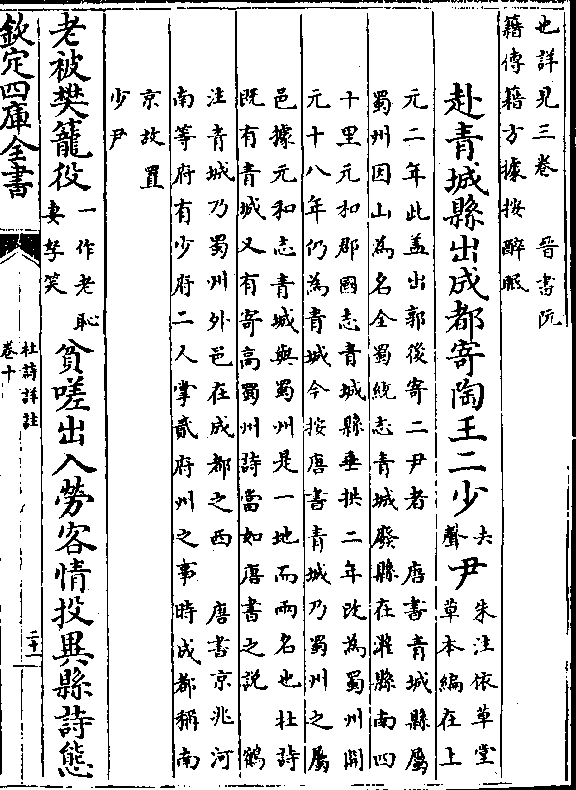 也詳見三卷　晉書阮
籍傳籍方據按醉眠
赴青城縣出成都寄陶王二少去聲尹朱注依草堂草本編在上
元二年此蓋出郭後寄二尹者　唐書青城縣屬
蜀州因山為名全蜀統志青城廢縣在灌縣南四
十里元和郡國志青城縣垂拱二年改為蜀州開
元十八年仍為青城今按唐書青城乃蜀州之屬
邑據元和志青城與蜀州是一地而兩名也杜詩
既有青城又有寄高蜀州詩當如唐書之說　鶴
注青城乃蜀州外邑在成都之西　唐書京兆河
南等府有少府二人掌貳府州之事時成都稱南
京故置
少尹
老被樊籠役一作老恥妻孥笑貧嗟出入勞客情投異縣詩態
欽定四庫全書
杜詩詳註
卷十
二十一